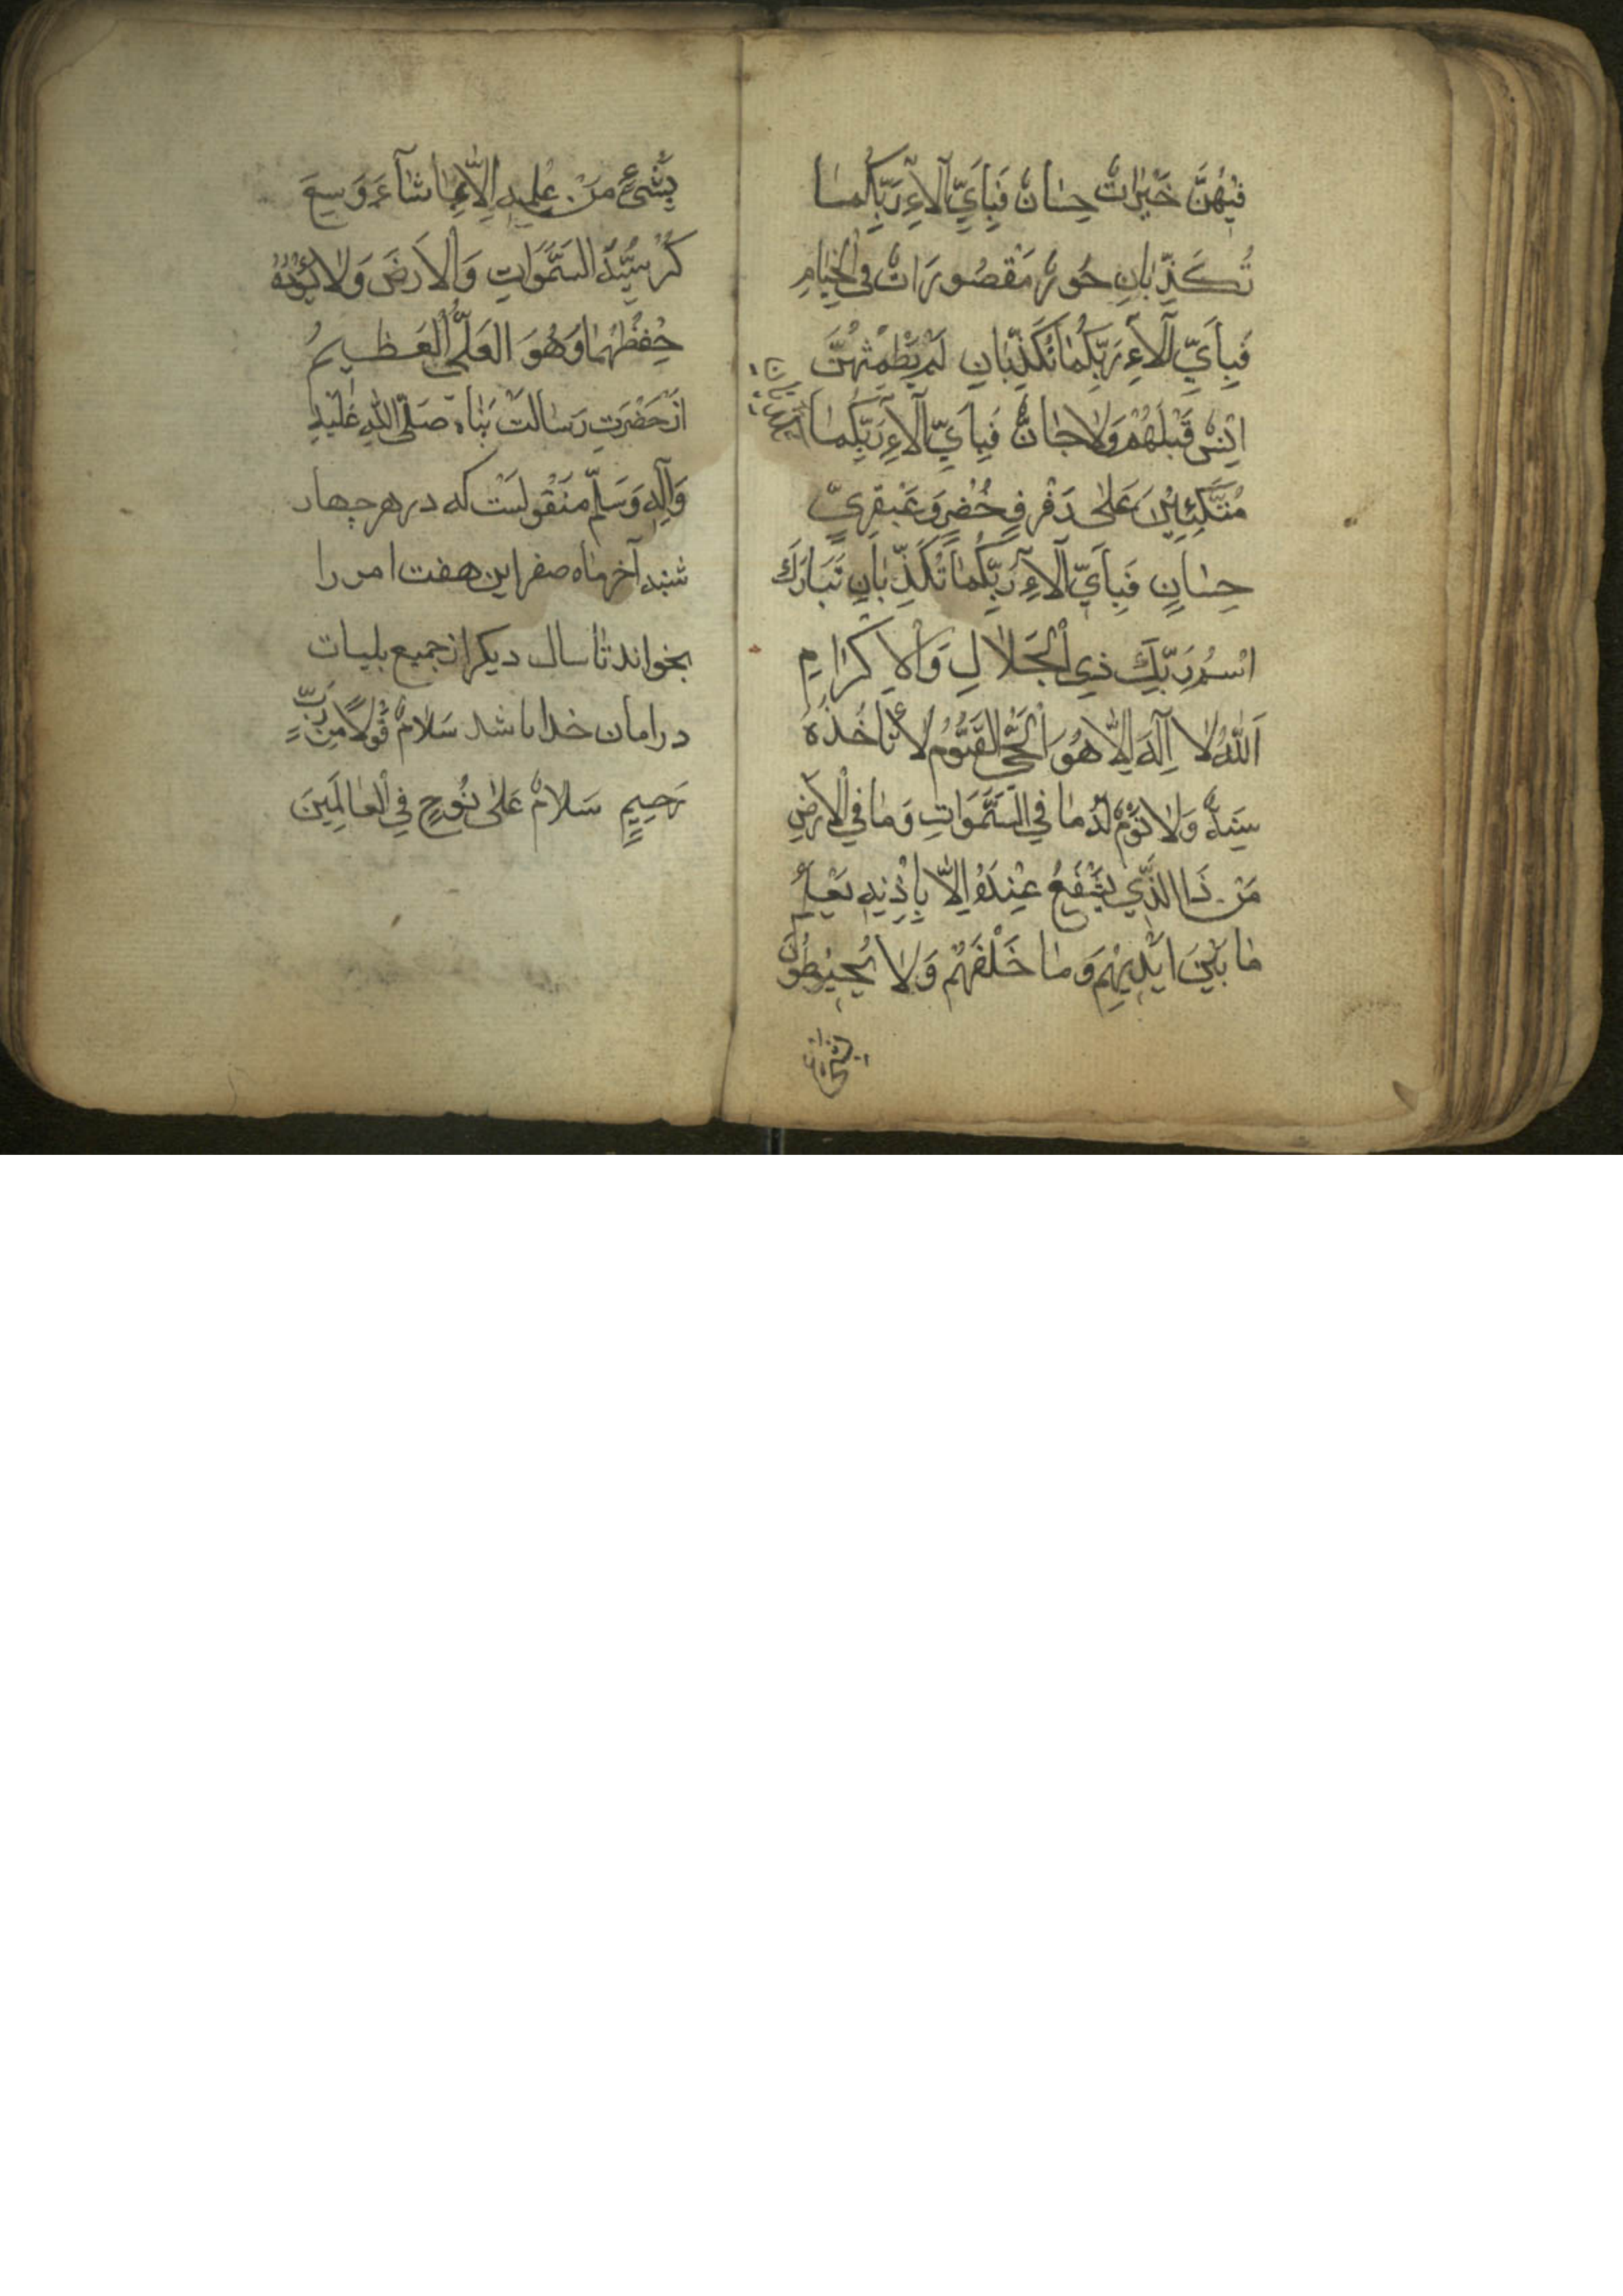 فِيهُنَّ خَيْرَاتٌ حِسَانٌ فَبِاَيِّ آلَاءِ رَبِّكُمَا
تُكَذِّبَانِ حُورٌ مَقْصُورَاتٌ فِي الْخِيَامِ
فَبِاَيِّ آلَاءِ رَبِّكُمَا تُكَذِّبَانِ لَمْ يَطْمِثْهُنَّ
اِنْسٌ قَبْلَهُمْ وَلَا جَانٌّ فَبِاَيِّ آلَاءِ رَبِّكُمَا
مُتَّكِئِينَ عَلَى رَفْرَفٍ خُضْرٍ وَعَبْقَرِيٍّ
حِسَانٍ فَبِاَيِّ آلَاءِ رَبِّكُمَا تُكَذِّبَانِ تَبَارَكَ
اسْمُ رَبِّكَ ذِي الْجَلَالِ وَالْاِكْرَامِ
اَللّٰهُ لَا اِلٰهَ اِلَّا هُوَ الْحَيُّ الْقَيُّومُ لَا تَأْخُذُهُ
سِنَةٌ وَلَا نَوْمٌ لَهُ مَا فِي السَّمَوَاتِ وَمَا فِي الْاَرْضِ
مَنْ ذَا الَّذِي يَشْفَعُ عِنْدَهُ اِلَّا بِاِذْنِهِ يَعْلَمُ
مَا بَيْنَ اَيْدِيهِمْ وَمَا خَلْفَهُمْ وَلَا يُحِيطُونَ
بِشَيْءٍ مِنْ عِلْمِهِ اِلَّا بِمَا شَآءَ وَسِعَ
كُرْسِيُّهُ السَّمَوَاتِ وَالْاَرْضَ وَلَا يَؤُدُهُ
حِفْظُهُمَا وَهُوَ الْعَلِيُّ الْعَظِيمُ
از حَضْرَتِ رِسَالَتْ پَنَاه صَلَّى اللّٰهِ عَلَيْهِ
وَآلِهِ وَسَلَّمْ مَنْقُولَسْت که در هر چهار
شنبه آخر ماه صفر این هفت امر را
بخواند تا سال دیکر از جمیع بلیات
در امان خدا باشد سَلَامٌ قَوْلًا مِنْ رَبٍّ
رَحِيمٍ سَلَامٌ عَلَى نُوحٍ فِي الْعَالَمِينَ